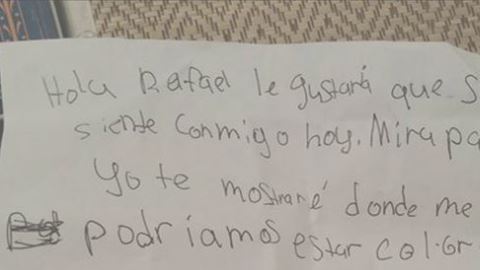 Hola Rafael le gustará que s
siente conmigo hoy. Mira pa
Yo te mostraré donde me
podriamos estar col.or